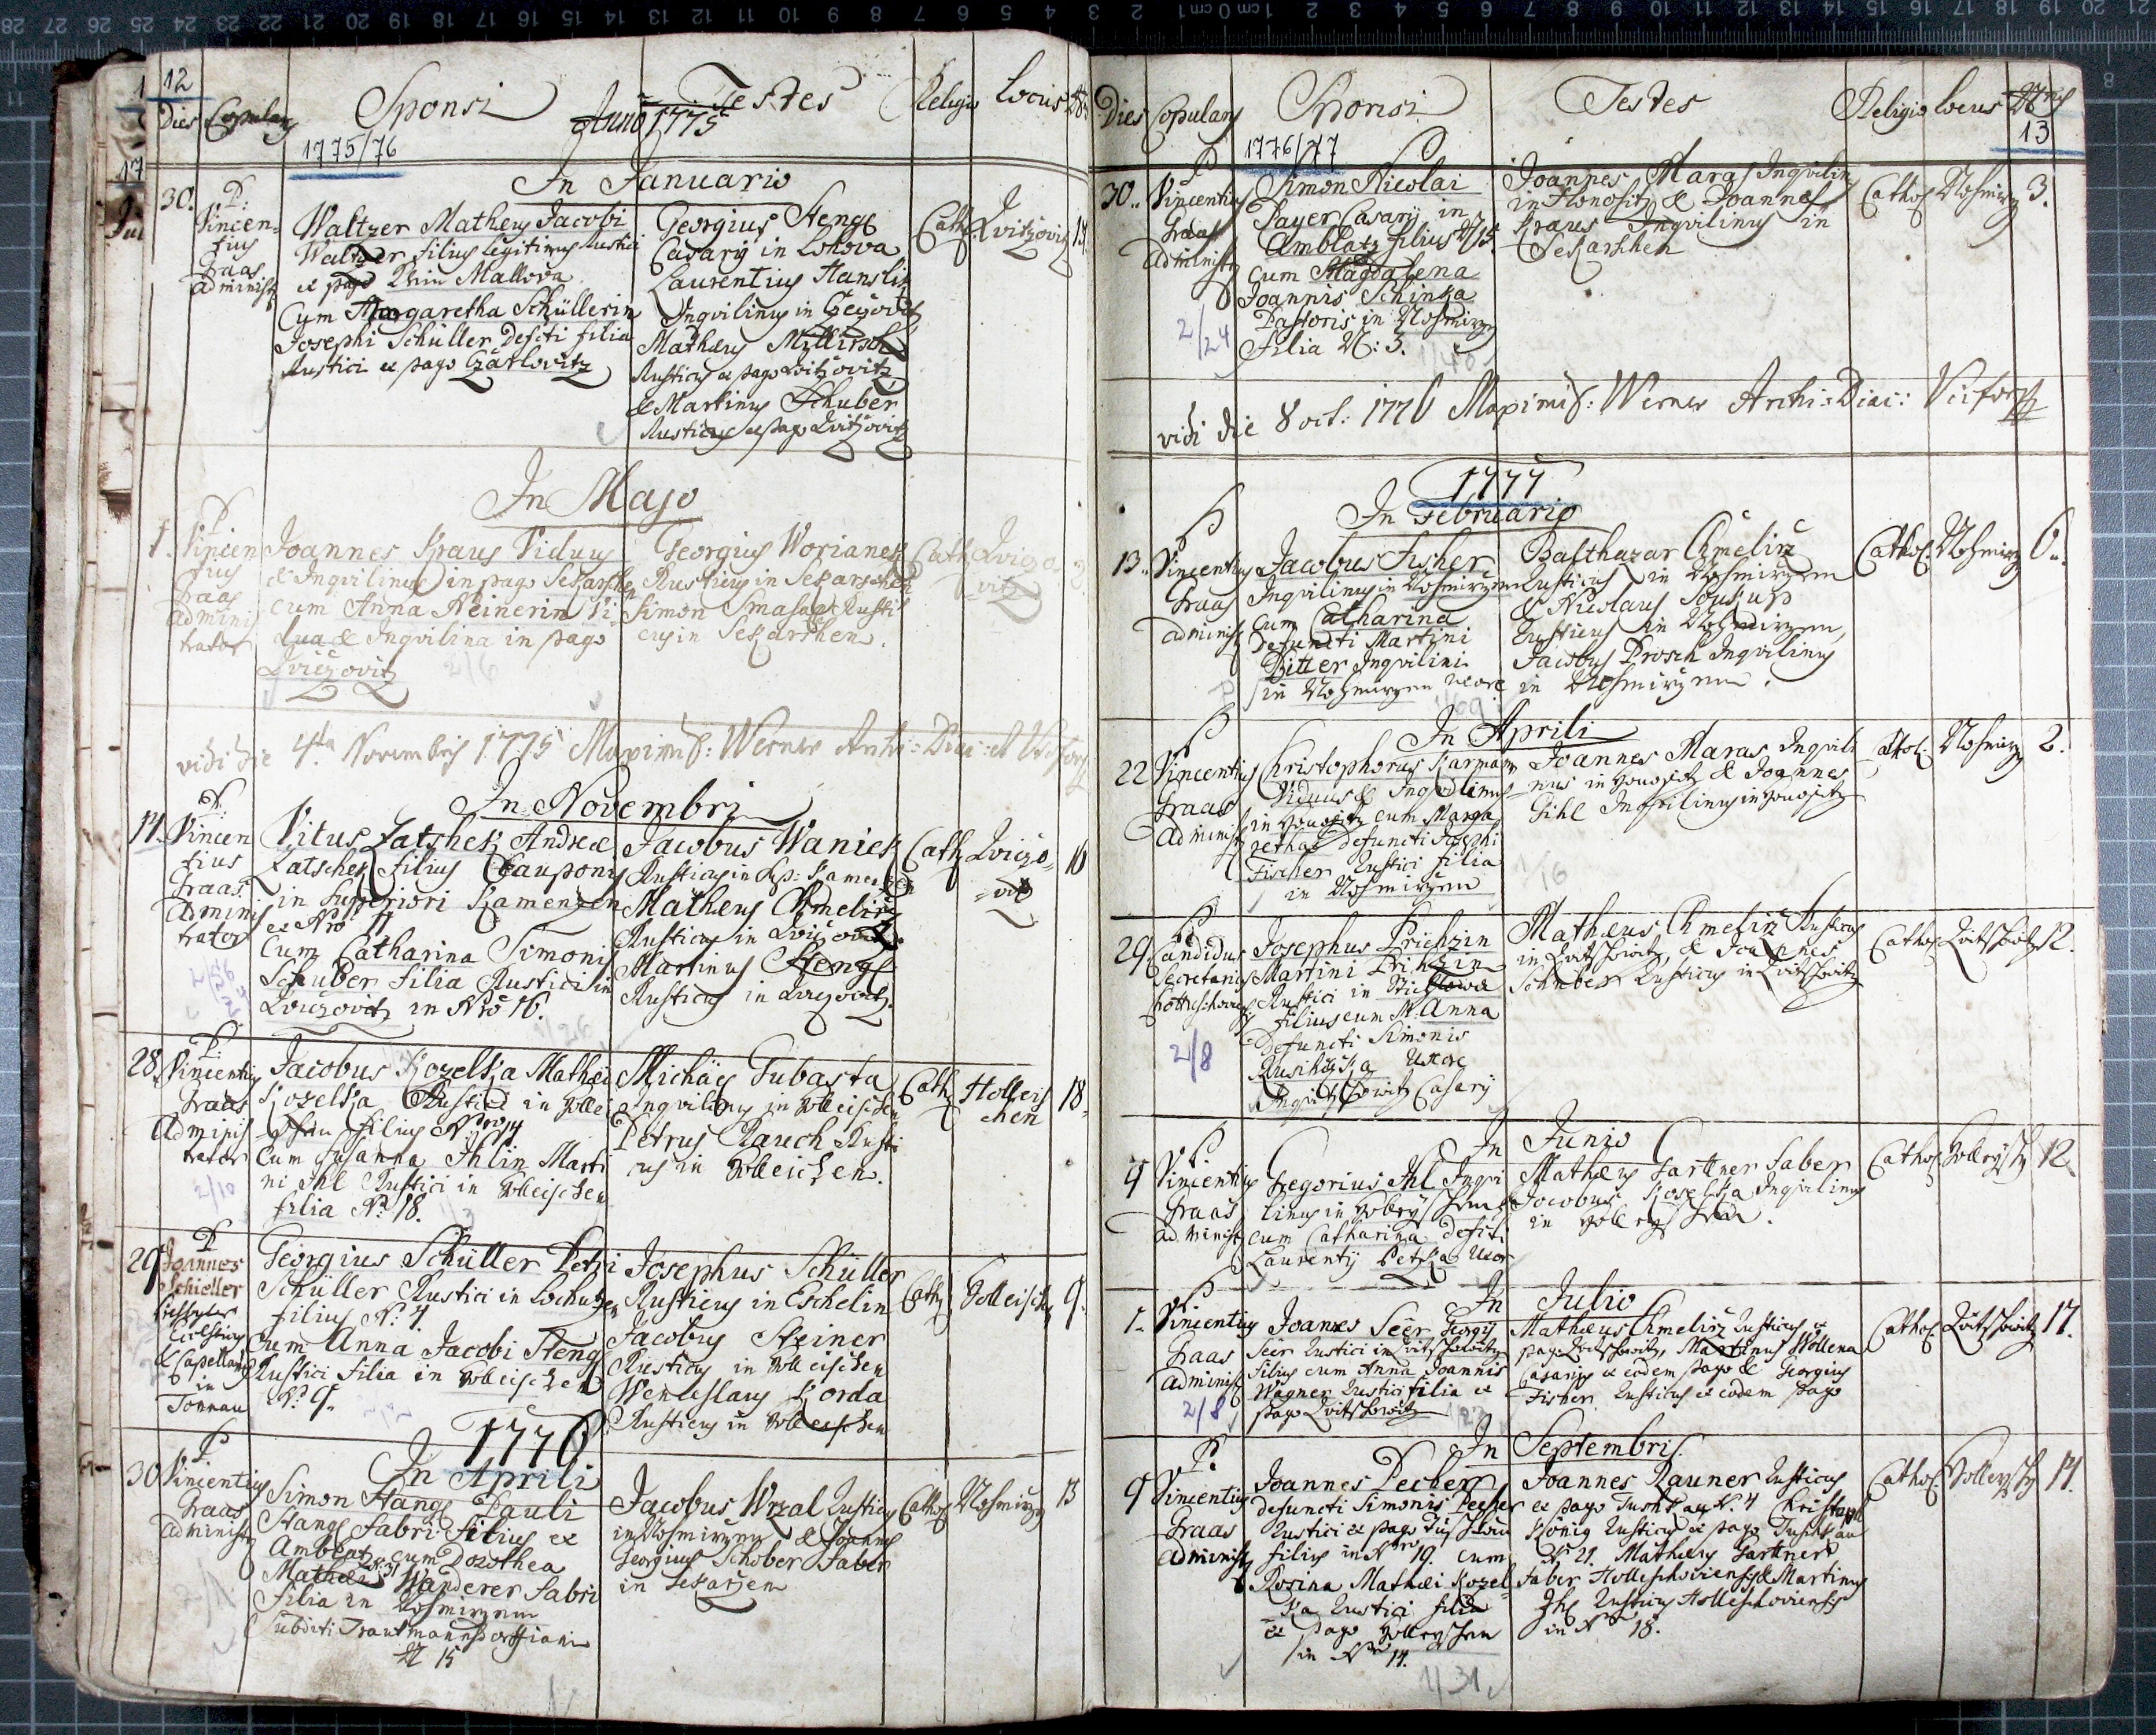 12
Dies Copulans Sponsi Testes Religio Locus
Anno 1775
1775/76
In Januario
30. P: Vincentius Graas Administ
Waltzer Matheus Jacobi
Waltzer filius Legitimus Rustici
ex pago Mallova
Cum Margaretha Schüllerin
Josephi Schüller Defcti filia
Rustici ex pago Czarlovitz
Georgius Stengl
Casarij in Lohova
Laurentius Hanslik
Inqvilinus in
Matheus
Rusticus ex pago Lvitzovitz
& Martinus Schuber
Rusticus ex pago Lvitzovitz
Cath. Lvitzovitz
In Majo
1. P Vincentius Graas Administrator
Joannes Kraus Viduus
& Inqvilinus in pago Sekarshen
cum Anna Neinerin Vi-
dua & Inqvilina in pago
Lviczovitz
Georgius Worianek
Rusticus in Sekarschen
Simon Smasal Rusti
cus in Sekarshen.
Cath. Lviczovitz 2
2/6
vidi die 4ta Novembris 1775 Maximil: Werner Archi-Diac: et
In Novembri
14. P: Vincentius Graas Administrator
Vitus Zatshek Andreæ
Zatschek filius Cauponis
in Superiori Kamenzen
ex Nro 11
Cum Catharina Simonis
Schuber filia Rustici in
Lviczovitz in Nro 16.
Jacobus Waniek
Rusticus in Sup: Kamenzen
Matheus Chmelirz
Rusticus in Lviczovitz
Martinus Stengl
Rusticus in Lviczovitz.
Cath. Lviczovitz 16
28. P: Vincentius Graas Administrator
Jacobus Kozelka Mathæi
Kozelka Rustici in Hollei-
schen filius Nro 14
Cum Susanna Ihlin Marti
ni Ihl Rustici in Holleischen
filia Nr: 18.
Michäel Tubasta
Inqvilinus in Holleischen
Petrus Rauch Rusti
cus in Holleischen.
Cath. Holleischen 18.
2/10
29 P Joannes Schieller
& Capellanus in Tonnau
Georgius Schüller Petri
Schüller Rustici in Lochutzen
filius N. 4
Cum Anna Jacobi Steng
Rustici filia in Holleischen
N: 9.
Josephus Schüller
Rusticus in Eschelin
Jacobus Steiner
Rusticus in Holleischen
Wenceslaus Korda
Rusticus in Holleischen
Cath. Holleisch 9.
1776
In Aprili
30 P Vincentius Graas Administ
Simon Stangl Pauli
Stangl Fabri filius ex
Amblatz cum Dorothea
N: 31
Mathæi Wanderer Fabri
filia in Nosmirzen
Subditi Trautmannsdorffiani
N 15
Jacobus Wrzal Rusticus
in Nosmirzen & Joannes
Georgius Schober Faber
in Sekarzen
Cathol Nosmirz 13
Dies Copulans Sponsi Testes Religio Locus Nris
13
1776/77
30.. P Vincentius Graas Administ
Simon Nicolai
Payer Casarij in
Amblatz filius N 15.
cum Magdalena
Joannis Schinka
Pastoris in Nosmirz
filia N: 3.
Joannes Maras Inqvilin
in Honositz & Joannes
Kraus Inqvilinus in
Sekarshen
Cathol Nosmirz 3.
2/24
vidi die 8 oct: 1776 Maximil: Werner Archi-Diac: Victor
1777
In Februario
13.. P Vincentius Graas Administ
Jacobus Fisher
Inqvilinus in Nosmirzen
Cum Catharina
Defuncti Martini
Bitter Inqvilini
in Nosmirzen uxore
Balthazar Chmelirz
Rusticus in Nosmirzen
& Nicolaus
Rusticus in Nosmirzen,
Jacobus Prosch Inqvilinus
in Nosmirzen.
Cathol. Nosmirz 6..
In Aprili
22 P Vincentius Graas Administ
Christophorus Karmann
Viduus & Inqvilinus
in Honositz cum Marga
retha Defuncti Josephi
Fischer Rustici filia
in Nosmirzen
Joannes Maras Inqvili
nus in Honositz & Joannes
Gihl Inqvilinus in Honositz
Cathol: Nosmirz 2.
1/16
29 P: Candidus Secretarius
Josephus Prichzin
Martini Prichzin
Rustici in
filius cum Anna
Defuncti Simonis
Uxore
Casarij
Mathæus Chmelirz Rusticus
in Lvitschowitz, & Joannes
Schuber Rusticus in Lvitschowitz
Cathol Lvitschowitz 12.
2/8
In Junio
4 P Vincentius Graas Administ
Gregorius Ihl Inqvi
linus in Holleyschen
cum Catharina Defcti
Laurentij Petzka Uxor
Mathæus Garttner Faber
Jacobus Koselka Inqvilinus
in Holleyschen.
Cathol Holleysch 12.
In Julio
1. P Vincentius Graas Administ
Joannes Seer Georgij
Seer Rustici in Lvitschowitz
filius cum Anna Joannis
Wagner Rustici filia ex
pago Lvitschowitz
Mathæus Chmelirz Rusticus ex
pago Lvitschowitz, Martinus Wollena
Casarius ex eodem pago & Georgius
Fisher Rusticus ex eodem pago
Cathol Lvitschowitz 17.
2/8
In Septembris.
9 P: Vincentius Graas Administ
Joannes Pecher
defuncti Simonis Pecher
Rustici ex pago
filius in Nro 19. cum
Rosina Mathæi Kozel-
ka Rustici filia
ex pago Holleyschen
in Nro 14.
Joannes Launer Rusticus
ex pago Tushkau N. 4 Christoph
König Rusticus ex pago Tushkau
N. 21. Mathæus Garttner
Faber Holleschoviensis & Martinus
Ihl Rusticus Holleschoviensis
in Nro 18.
Cathol. Holleysch 14.
1/31